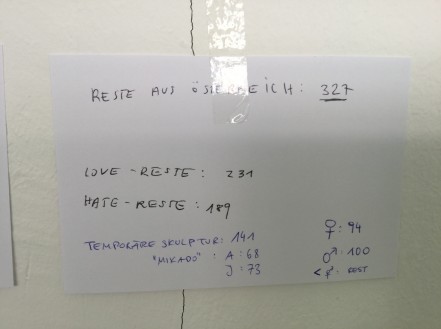 RESTE AUS ÖSTERREICH: 327
LOVE-RESTE: 231
HATE-RESTE: 189
TEMPORÄRE SKULPTUR: 141
"MIKADO": A: 68
J: 73
♀: 94
♂: 100
REST